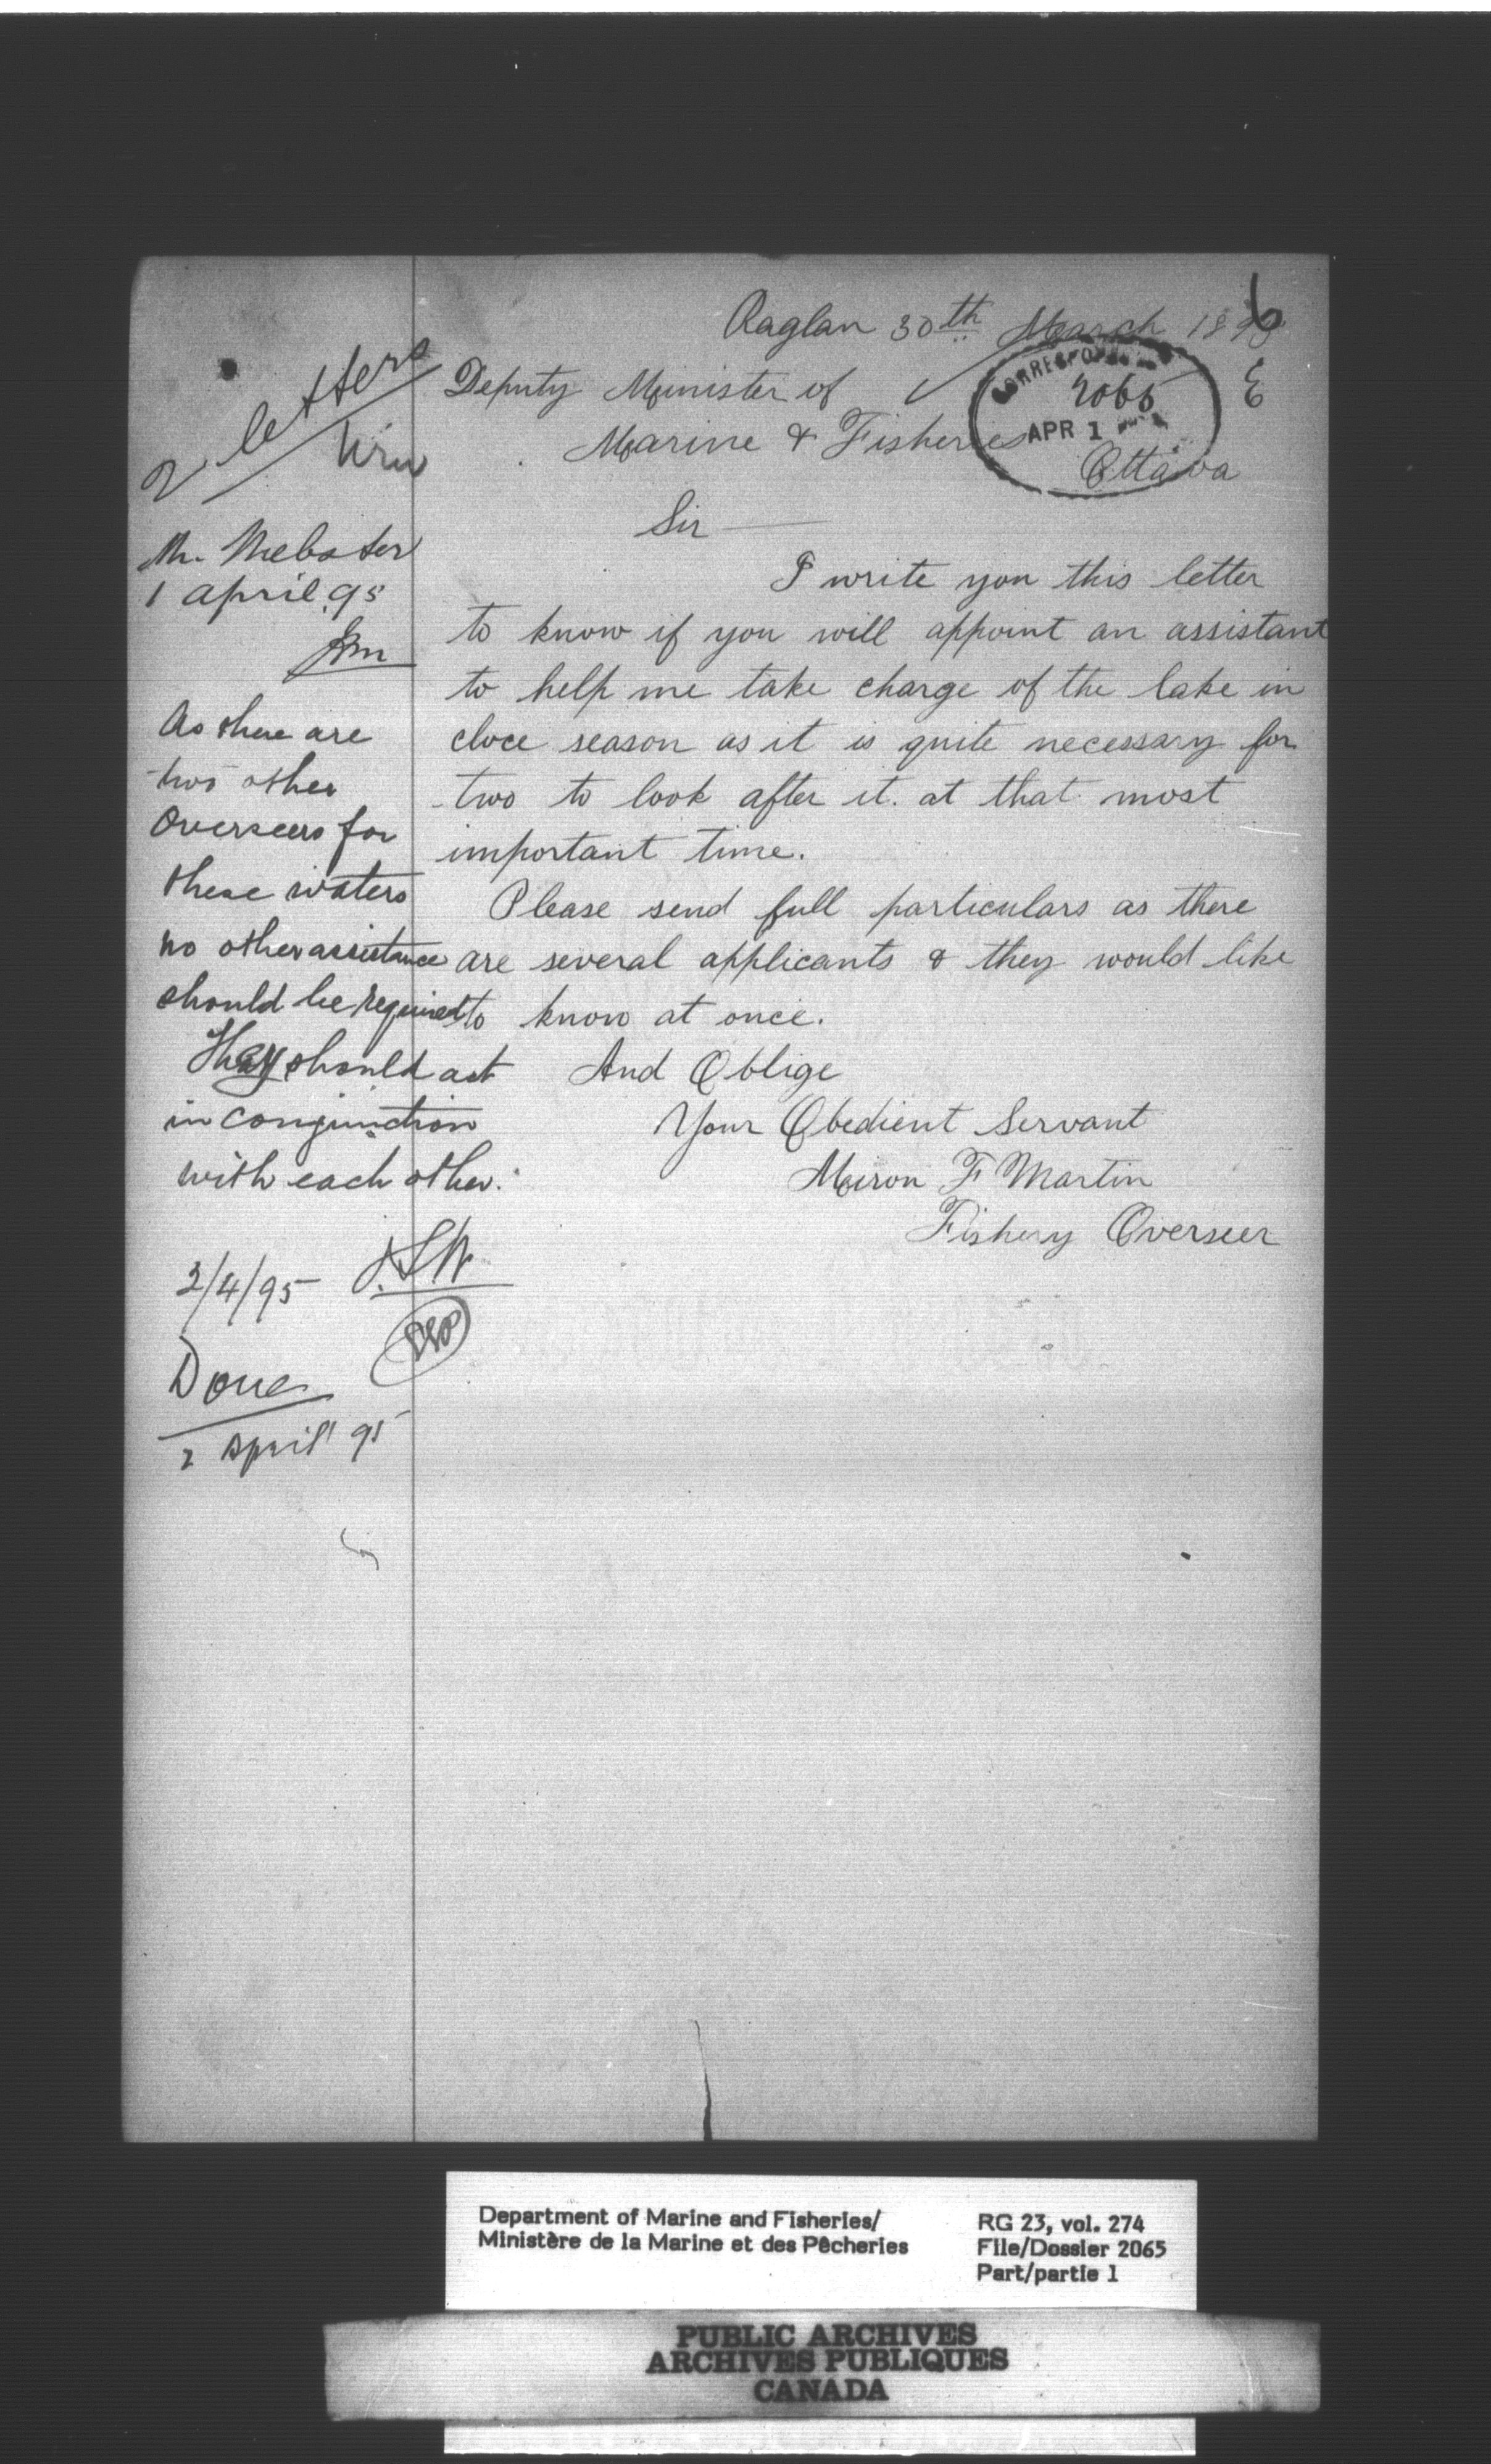 6
Raglan 30th March 1895
Deputy Minister of
Marine & Fisheries
Ottawa
CORRESPON
2065
APR 1
Sir
I write you this letter
to know if you will appoint an assistant
to help me take charge of the lake in
cloce season as it is quite necessary for
two to look after it. at that most
important time.
Please send full particulars as there
are several applicants & they would like
to know at once.
And Oblige
Your Obedient Servant
Meiron F Martin
Fishery Overseer
2 letters
Mr. Webster
1 april 95
As there are
two other
Overseers for
these waters
no other assistance
should be required
They should act
in conjunction
with each other.
2/4/95
Done
2 April 95
Department of Marine and Fisheries/
Ministère de la Marine et des Pêcheries
RG 23, vol. 274
File/Dossier 2065
Part/partie 1
PUBLIC ARCHIVES
ARCHIVES PUBLIQUES
CANADA